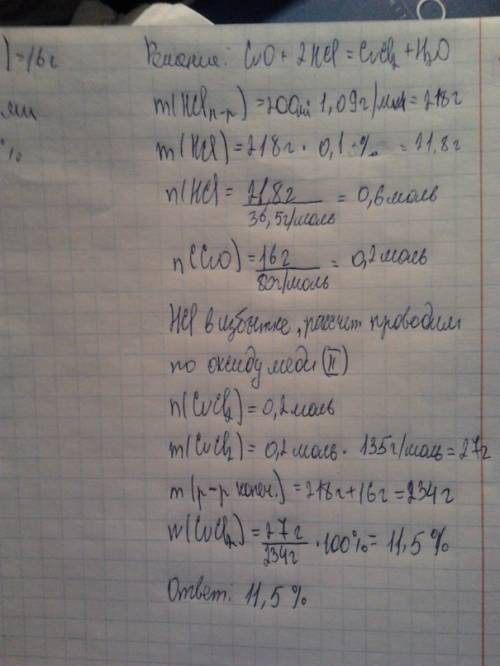 ) = 16г
Решение: CuO + 2HCl = CuCl₂ + H₂O
m(HClр-р) = 200мл 1,09г/мл = 218г
%
m(HCl) = 218г · 0,1 % = 21,8г
n(HCl) = 21,8г / 36,5г/моль = 0,6 моль
n(CuO) = 16г / 80г/моль = 0,2 моль
HCl в избытке, рассчет проводим
по оксиду меди (II)
n(CuCl₂) = 0,2 моль
m(CuCl₂) = 0,2 моль · 135г/моль = 27г
m(р-р конеч.) = 218г + 16г = 234г
w(CuCl₂) = 27г / 234г · 100% = 11,5 %
Ответ: 11,5 %